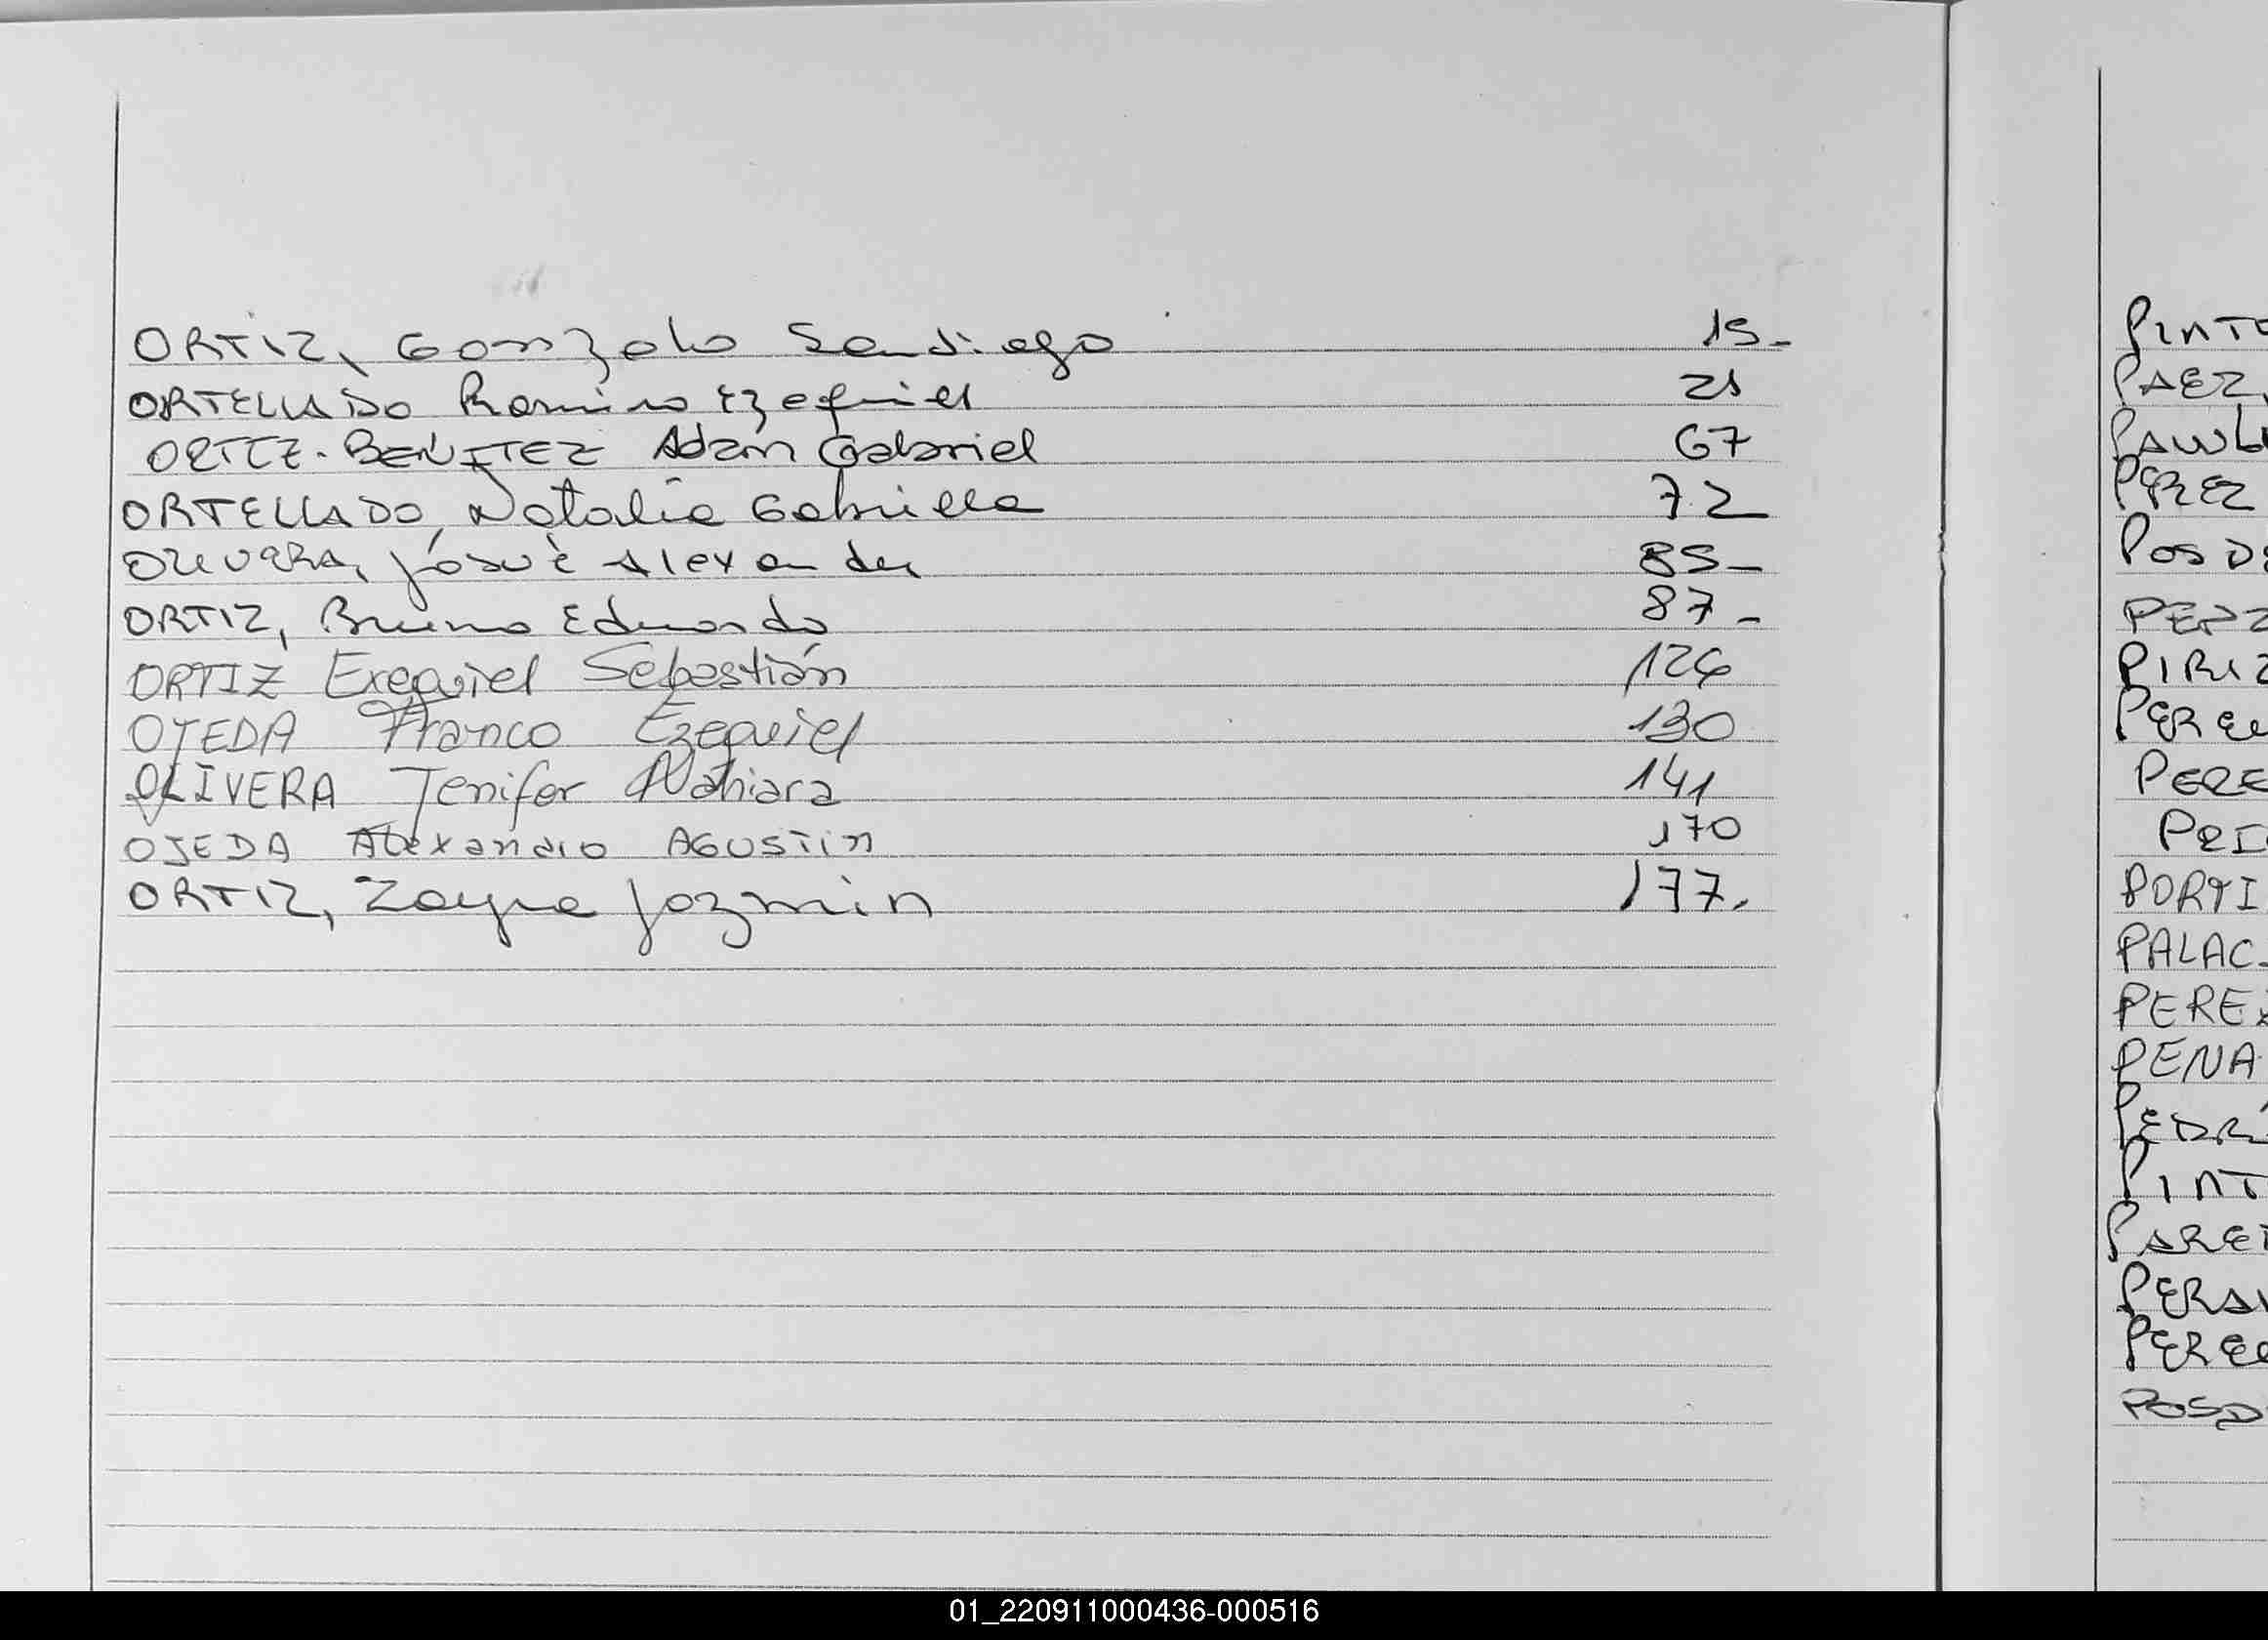 ORTIZ, Gonzalo Santiago 15-
ORTELLADO Ramiro Ezequiel 21
ORTIZ-BENITEZ Adán Gabriel 67
ORTELLADO, Natalia Gabriela 72
OLIVERA, Josué Alexander 85-
ORTIZ, Bruno Eduardo 87-
ORTIZ Exequiel Sebastián 124
OJEDA Franco Ezequiel 130
OLIVERA Jenifer Nahiara 141
OJEDA Alexandro AGUSTIN 170
ORTIZ, Zayra Jazmin 177.
PINTO
PAEZ,
PAWL
PEREZ
POS DE
PIRIZ
PERE
PORTI
PALAC
PEREZ
PENA
PEDR
PINT
PARE
PERE
POSD
01_220911000436-000516